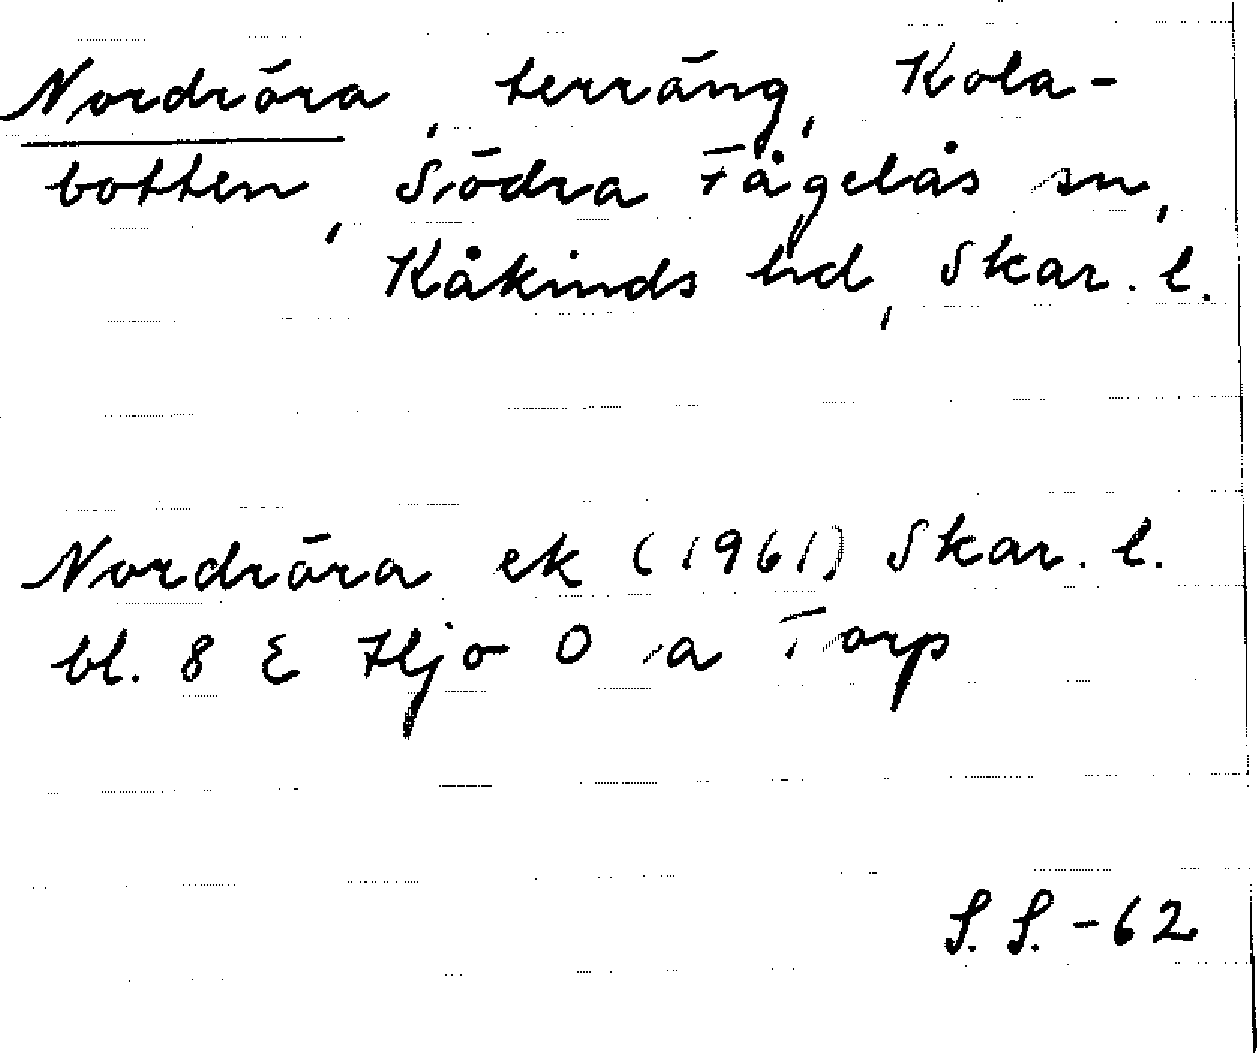 Nordröra, terräng, Kola-
botten, Södra Fågelås sn,
Kåkinds hd, Skar. l.
Nordröra ek (1961) Skar. l.
bl. 8 E Hjo O a Torp
S. S. -62